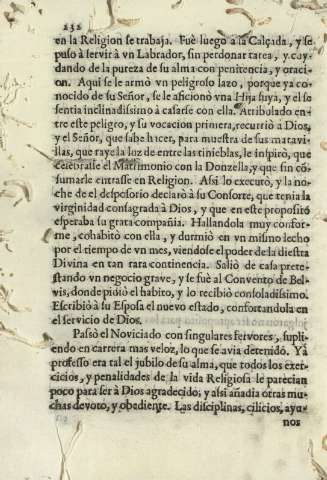 232
en la Religion se trabaja. Fuè luego a la Calçada, y se
puso à servir à vn Labrador, sin perdonar tarea, y cuy-
dando de la pureza de su alma con penitencia, y oraci-
on. Aqui se le armò vn peligroso lazo, porque ya co-
nocido de su Señor, se le aficionò vna Hija suya, y el se
sentia inclinadissimo à casarse con ella. Atribulado en-
tre este peligro, y su vocacion primera, recurriò a Dios,
y el Señor, que sabe hacer, para muestra de sus maravi-
llas, que raye la luz de entre las tinieblas, le inspirò, que
celebrasse el Matrimonio con la Donzella, y que sin cō-
sumarle entrasse en Religion. Assi lo executò, y la no-
che de el desposorio declarò à su Consorte, que tenia la
virginidad consagrada à Dios, y que en este proposito
esperaba su grata compañia. Hallandola muy confor-
me, cohabitò con ella, y durmiò en vn mismo lecho
por el tiempo de vn mes, viendose el poder de la diestra
Divina en tan rara continencia. Saliò de casa prete-
stando vn negocio grave, y se fuè al Convento de Bel-
vis, donde pidiò el habito, y lo recibiò consoladissimo.
Escribiò à su Esposa el nuevo estado, confortandola en
el servicio de Dios.
Passò el Noviciado con singulares fervores, supli-
endo en carrera mas veloz, lo que se avia detenido. Yà
professo era tal el jubilo de su alma, que todos los exer-
cicios, y penalidades de la vida Religiosa le parecian
poco para ser à Dios agradecido; y assi añadia otras mu-
chas devoto, y obediente. Las disciplinas, cilicios, ayu-
nos